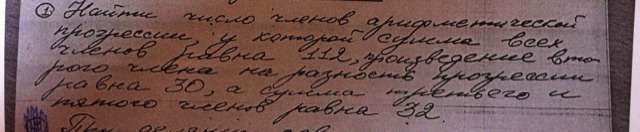 ① Найти число членов арифметической
прогрессии, у которой сумма всех
членов равна 112, произведение вто-
рого члена на разность прогрессии
равна 30, а сумма третьего и
пятого членов равна 32.
При